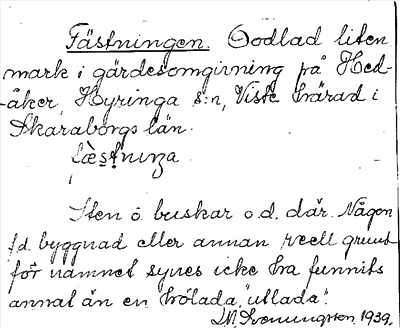 Fästningen. Oodlad liten
mark i gärdesomgivning på Hed-
åker, Hyringa s:n, Viste härad i
Skaraborgs län.
fæ̀stnıŋa
Sten o. buskar o.d. där. Någon
f.d. byggnad eller annan reell grund
för namnet synes icke ha funnits
annat än en hölada, "utlada".
Svenungsson 1939.